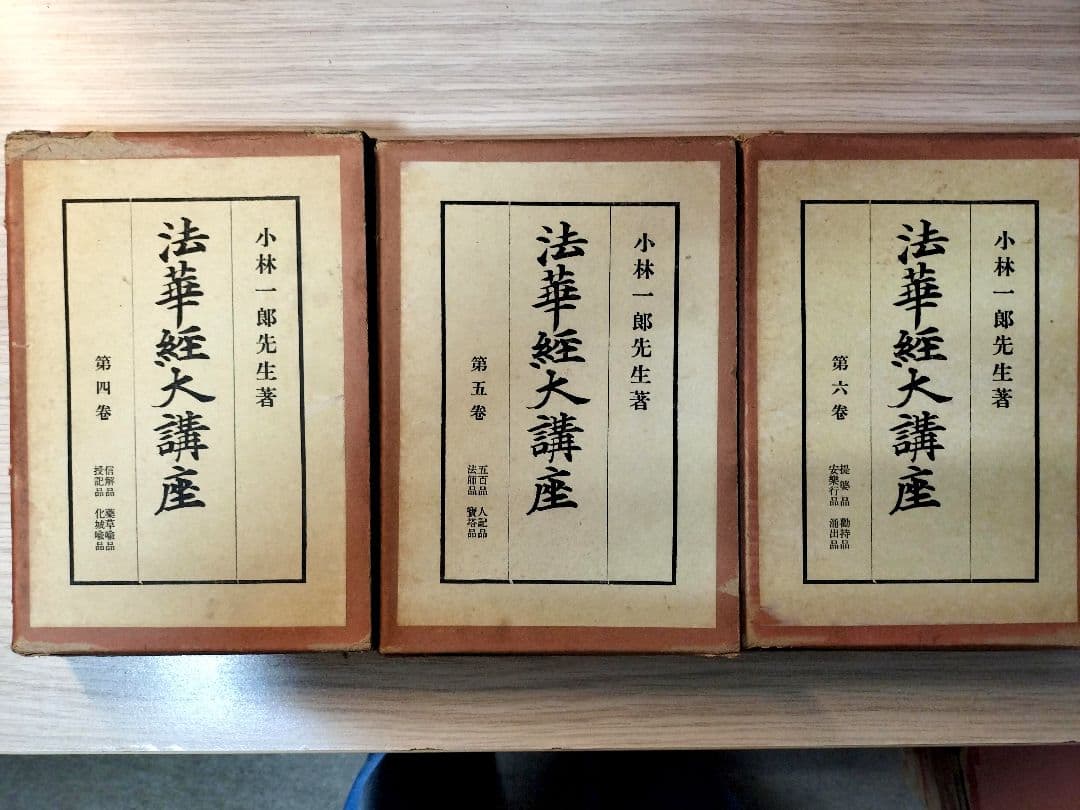 小林一郎先生著
法華經大講座
第四卷
信解品 藥草喩品
授記品 化城喩品
小林一郎先生著
法華經大講座
第五卷
五百品 人記品
法師品 寶塔品
小林一郎先生著
法華經大講座
第六卷
提婆品 勸持品
安樂行品 涌出品